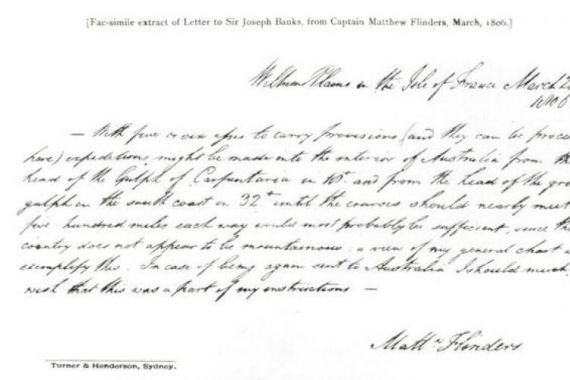 [Fac-simile extract of Letter to Sir Joseph Banks, from Captain Matthew Flinders, March, 1806.]
Wilhems Plains in the Isle of France March 2
1806
— With five or six asses to carry provisions (and they can be procu
here) expeditions might be made into the interior of Australia from th
head of the Gulph of Carpentaria in 18° and from the head of the gre
gulph on the south coast in 32° until the courses should nearly meet
five hundred miles each way would most probably be sufficient, since the
country does not appear to be mountainous: a view of my general chart w
exemplify this. In case of being again sent to Australia I should much
wish that this was a part of my instructions —
Matt.w Flinders
Turner & Henderson, Sydney.